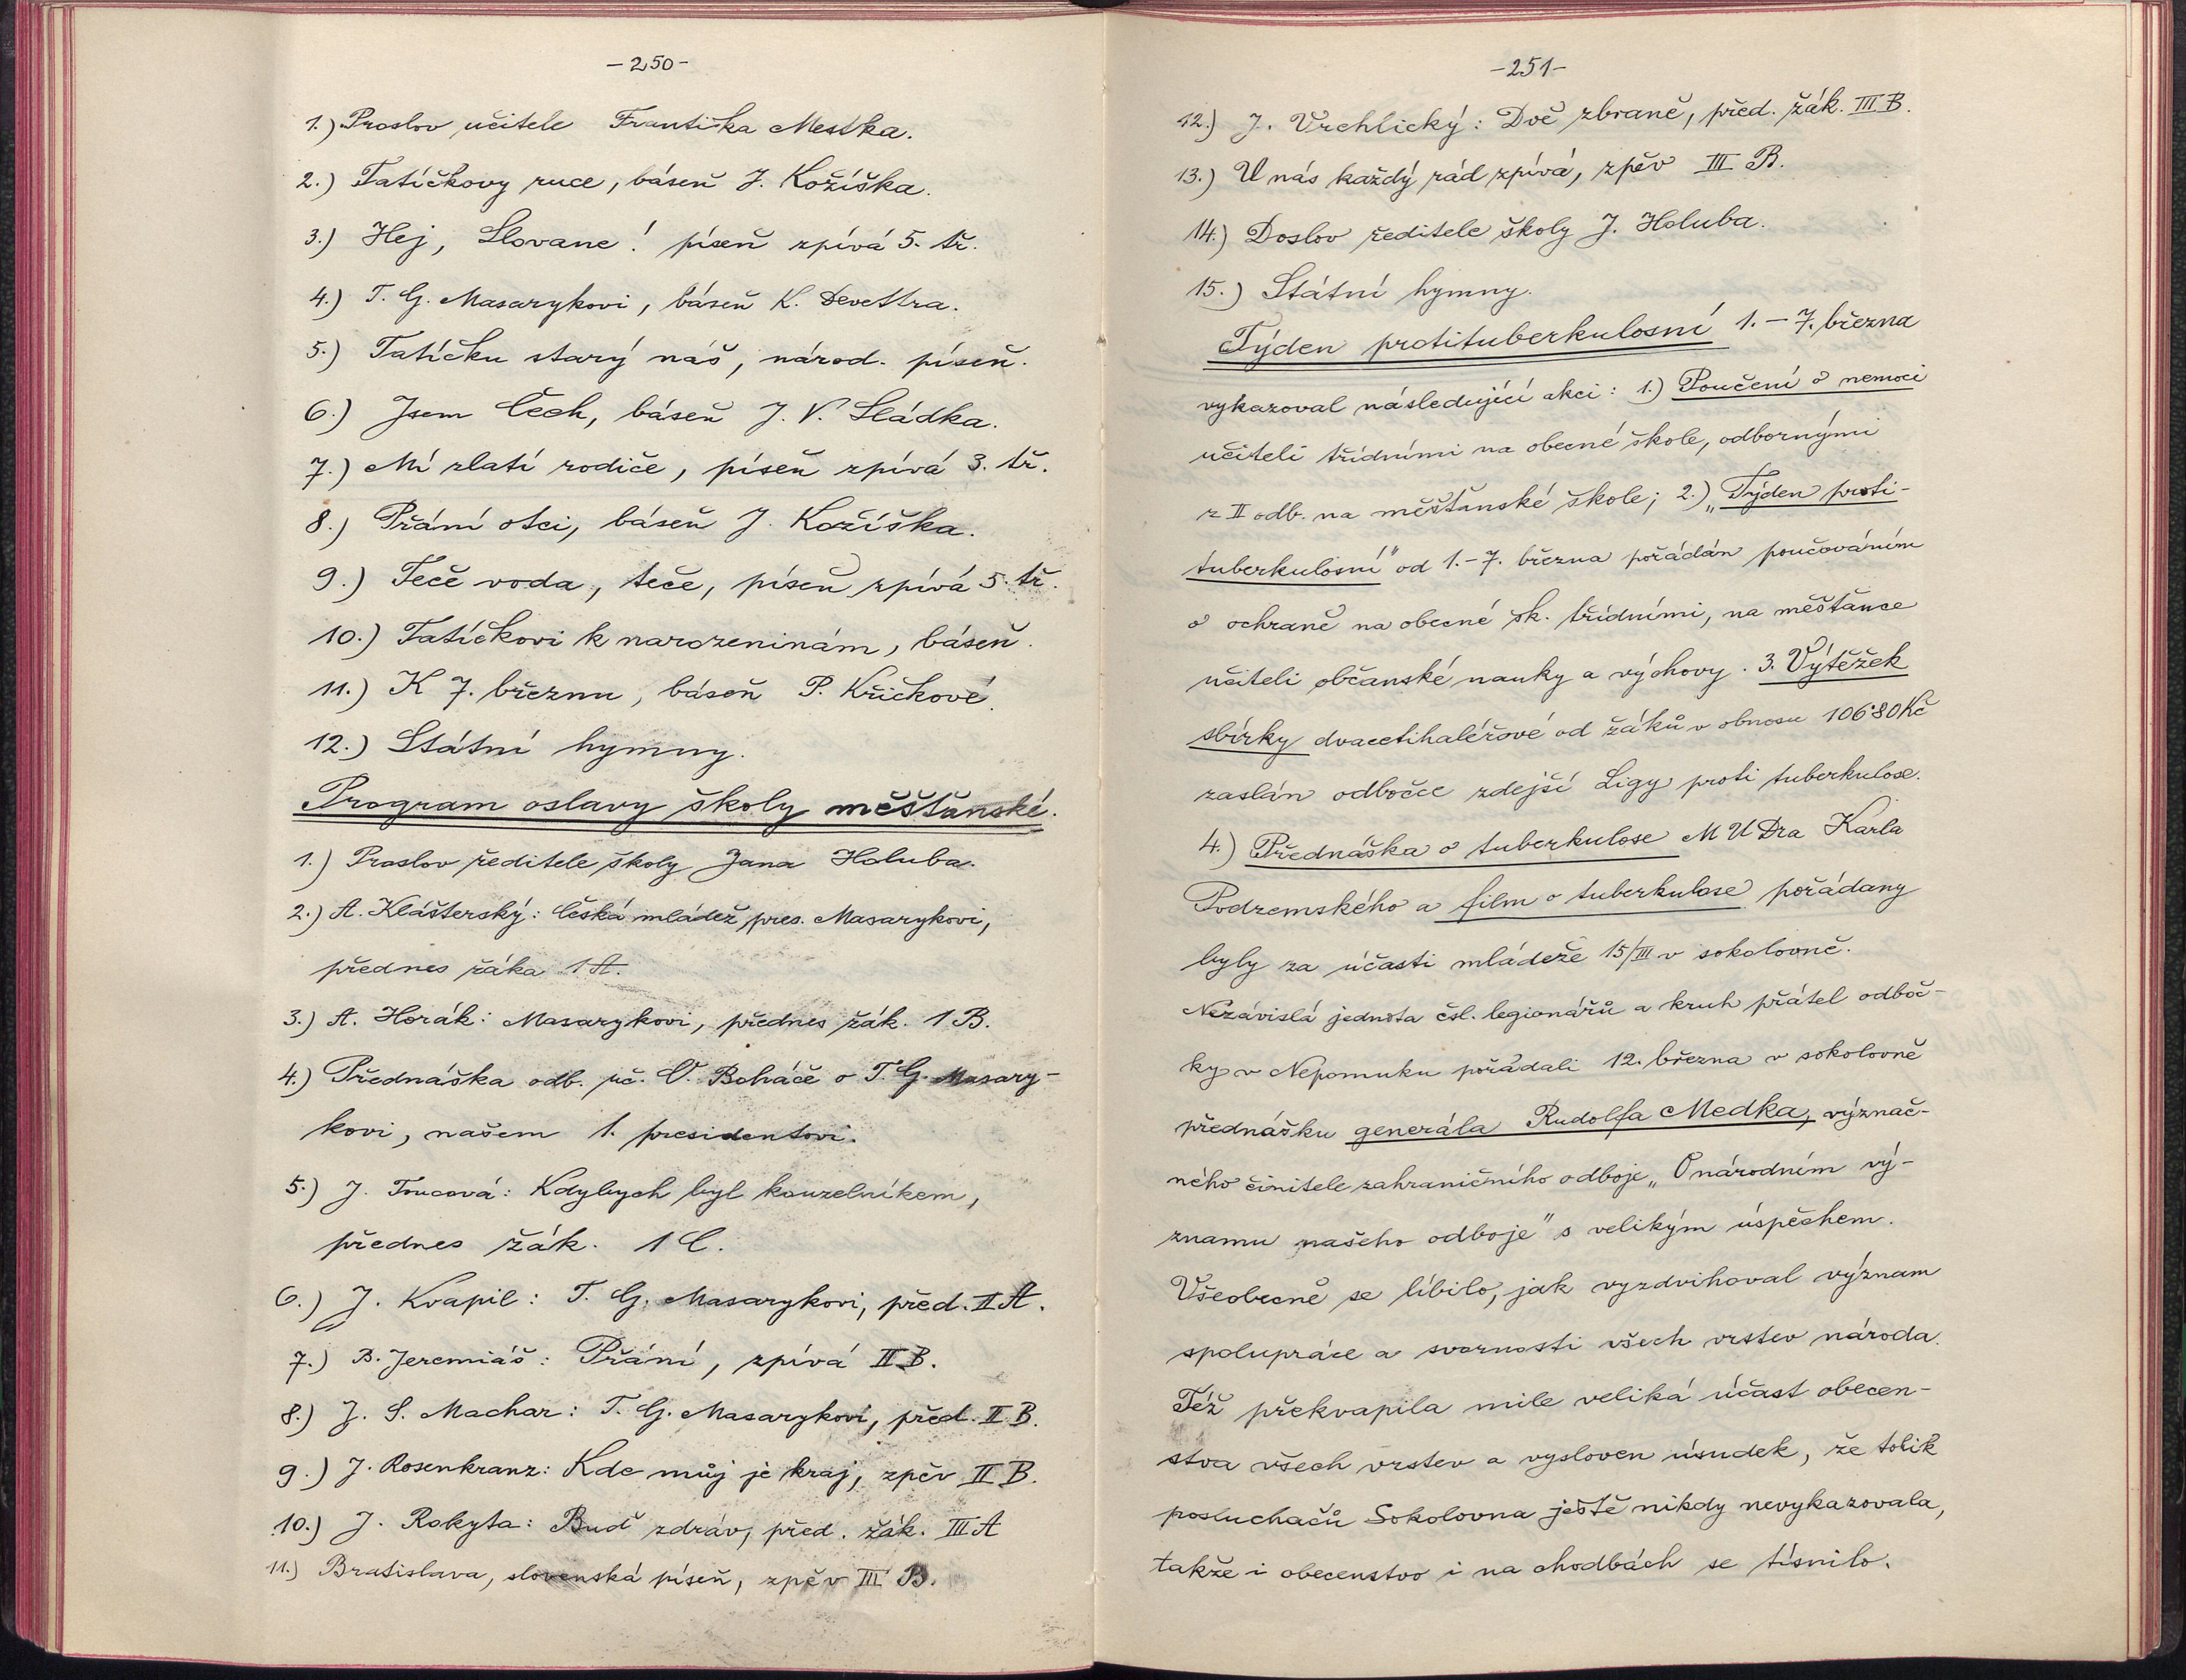 -250-
1.) Proslov učitele Františka Mestka.
2.) Tatíčkovy ruce, báseň J. Kožíška.
3.) Hej, Slovane! píseň zpívá 5. tř.
4.) T. G. Masarykovi, báseň K. Devettra.
5.) Tatíčku starý náš, národ. píseň.
6.) Jsem Čech, báseň J. V. Sládka.
7.) Mí zlatí rodiče, píseň zpívá 3. tř.
8.) Přání otci, báseň J. Kožíška.
9.) Teče voda, teče, píseň zpívá 5. tř.
10.) Tatíčkovi k narozeninám, báseň.
11.) K 7. březnu, báseň P. Křičkové.
12.) Státní hymny.
Program oslavy školy měšťanské.
1.) Proslov ředitele školy Jana Holuba.
2.) A. Klášterský: Česká mládež pres. Masarykovi,
přednes žáka 1 A.
3.) A. Horák: Masarykovi, přednes žák. 1 B.
4.) Přednáška odb. uč. V. Boháče o T. G. Masary-
kovi, našem 1. presidentovi.
5.) J. Toucová: Kdybych byl kouzelníkem,
přednes žák. 1 C.
6.) J. Kvapil: T. G. Masarykovi, před. II A.
7.) B. Jeremiáš: Přání, zpívá II B.
8.) J. S. Machar: T. G. Masarykovi, před. II B.
9.) J. Rosenkranz: Kde můj je kraj, zpěv II B.
10.) J. Rokyta: Buď zdráv, před. žák. III A
11.) Bratislava, slovenská píseň, zpěv III B.
-251-
12.) J. Vrchlický: Dvě zbraně, před. žák. III B.
13.) U nás každý rád zpívá, zpěv III B.
14.) Doslov ředitele školy J. Holuba.
15.) Státní hymny.
Týden protituberkulosní 1. - 7. března
vykazoval následující akci: 1.) Poučení o nemoci
učiteli třídními na obecné škole, odbornými
z II odb. na měšťanské škole; 2.) „Týden proti-
tuberkulosní" od 1. - 7. března pořádán poučováním
o ochraně na obecné šk. třídními, na měšťance
učiteli občanské nauky a výchovy. 3. Výtěžek
sbírky dvacetihaléřové od žáků v obnosu 106·80 Kč
zaslán odbočce zdejší Ligy proti tuberkulose.
4.) Přednáška o tuberkulose MUDra Karla
Podzemského a film o tuberkulose pořádany
byly za účasti mládeže 15/III v sokolovně.
Nezávislá jednota čsl. legionářů a kruh přátel odboč-
ky v Nepomuku pořádali 12. března v sokolovně
přednášku generála Rudolfa Medka, význač-
ného činitele zahraničního odboje „O národním vý-
znamu našeho odboje" s velikým úspěchem.
Všeobecně se líbilo, jak vyzdvihoval význam
spolupráce a svornosti všech vrstev národa.
Též překvapila mile veliká účast obecen-
stva všech vrstev a vysloven úsudek, že tolik
posluchačů Sokolovna ještě nikdy nevykazovala,
takže i obecenstvo i na chodbách se tísnilo.